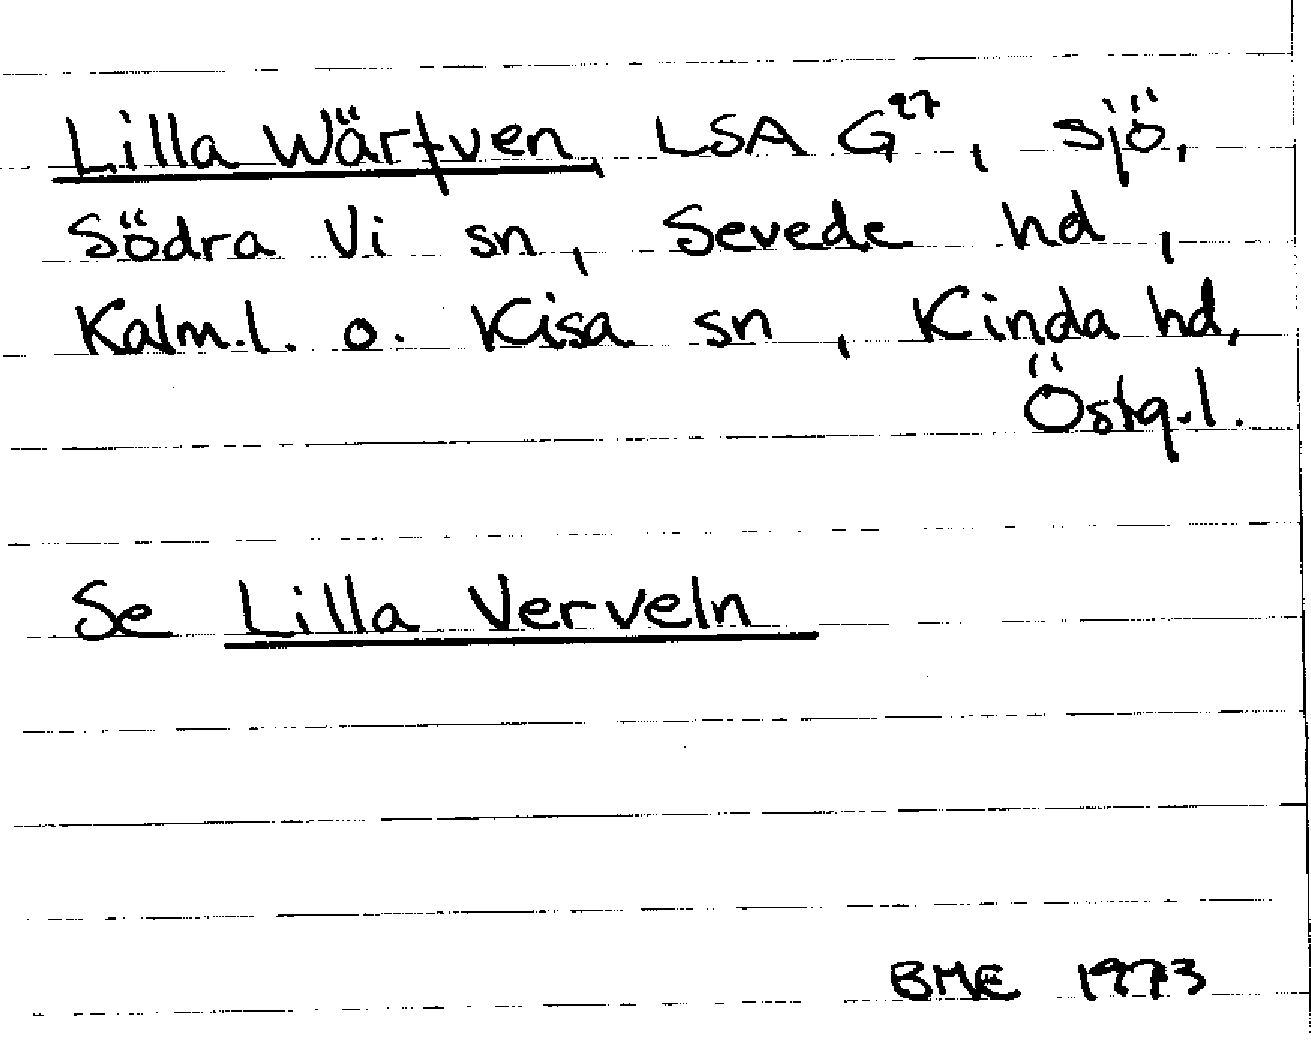 Lilla Wärfven, LSA G²⁷, sjö,
Södra Vi sn, Sevede hd,
Kalm.l. o. Kisa sn, Kinda hd,
Östg.l.
Se Lilla Verveln
BME 1973